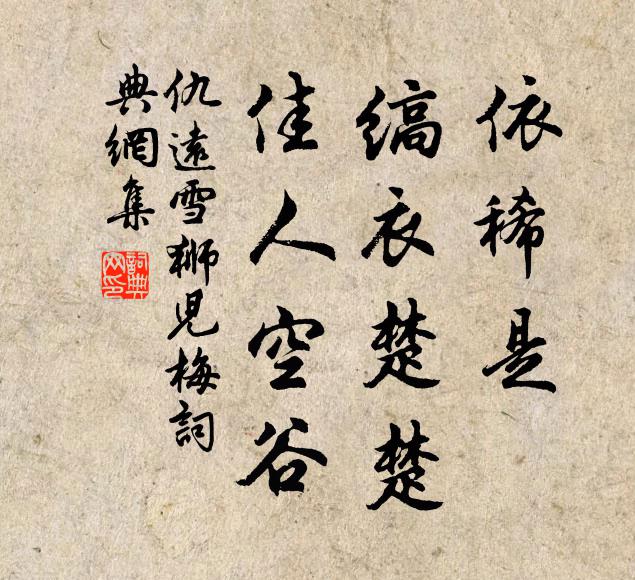 依稀是
缟衣楚楚
佳人空谷
仇遠雪獅児梅詞
典網集
詞典网印